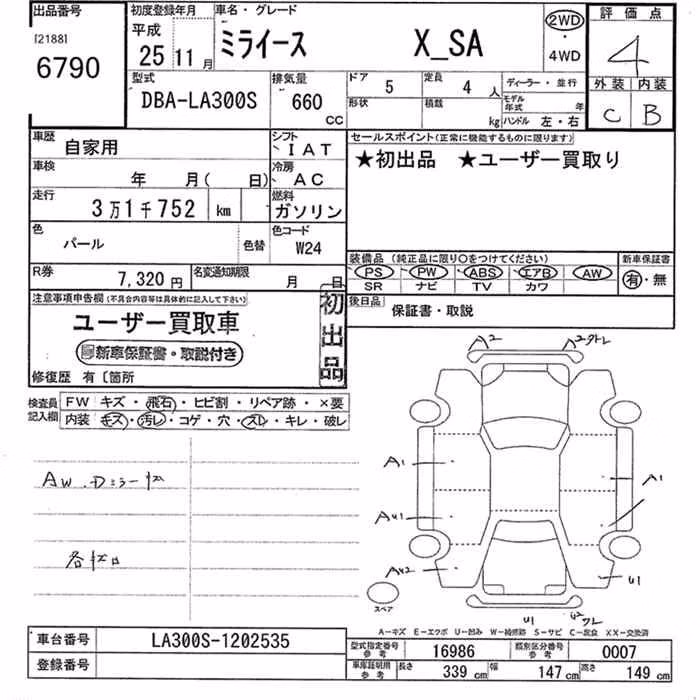 出品番号 初度登録年月 車名・グレード 評価点
[2188] 平成 ミライース X_SA 2WD 4
6790 25 11月 ・ 4WD
外装 内装
型式 排気量 ドア 5 定員 4人 ディーラー・並行 C B
DBA-LA300S 660 CC 形状 積載 kg モデル年式 年
ハンドル 左・右
車歴 自家用 シフト IAT セールスポイント(正常に機能するものに限ります)
車検 年 月( 日) 冷房 AC ★初出品 ★ユーザー買取り
走行 3万1千752 km 燃料 ガソリン
色 パール 色替 色コード W24
装備品(純正品に限り○をつけてください) 新車保証書
R券 7,320円 名変通知期限 月 日 PS PW ABS エアB AW 有・無
SR ナビ TV カワ
注意事項申告欄(不具合内容等は具体的に記入して下さい) 初出品 後日品 保証書・取説
ユーザー買取車
新車保証書・取説付き
修復歴 有〔箇所
検査員記入欄 FW キズ・飛石・ヒビ割・リペア跡・×要
内装 キズ・汚レ・コゲ・穴・スレ・キレ・破レ
A2 A2
A1 A1
AW.Dミラーキズ
AU1
AU2 U1
スペア
U1 U2
A-キズ E-エクボ U-凹み W-補修跡 S-サビ C-腐食 XX-交換済
車台番号 LA300S-1202535 型式指定番号 参考 16986 類別区分番号 参考 0007
登録番号 車庫証明用 参考 長さ 339cm 幅 147cm 高さ 149cm